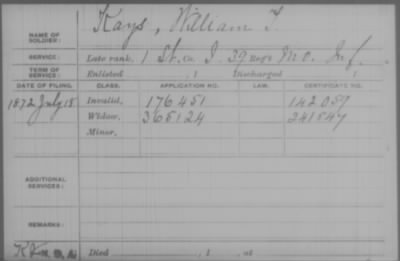 NAME OF SOLDIER: Kays, William T.
SERVICE: Late rank, 1 St. Co. I. 39 Reg't Mo. Inf.
TERM OF SERVICE: Enlisted , 1 Discharged , 1
DATE OF FILING. CLASS. APPLICATION NO. LAW. CERTIFICATE NO.
1872 July 18 Invalid, 176451 142059
Widow, 365124 241547
Minor,
ADDITIONAL SERVICES:
REMARKS:
Died , 1 , at